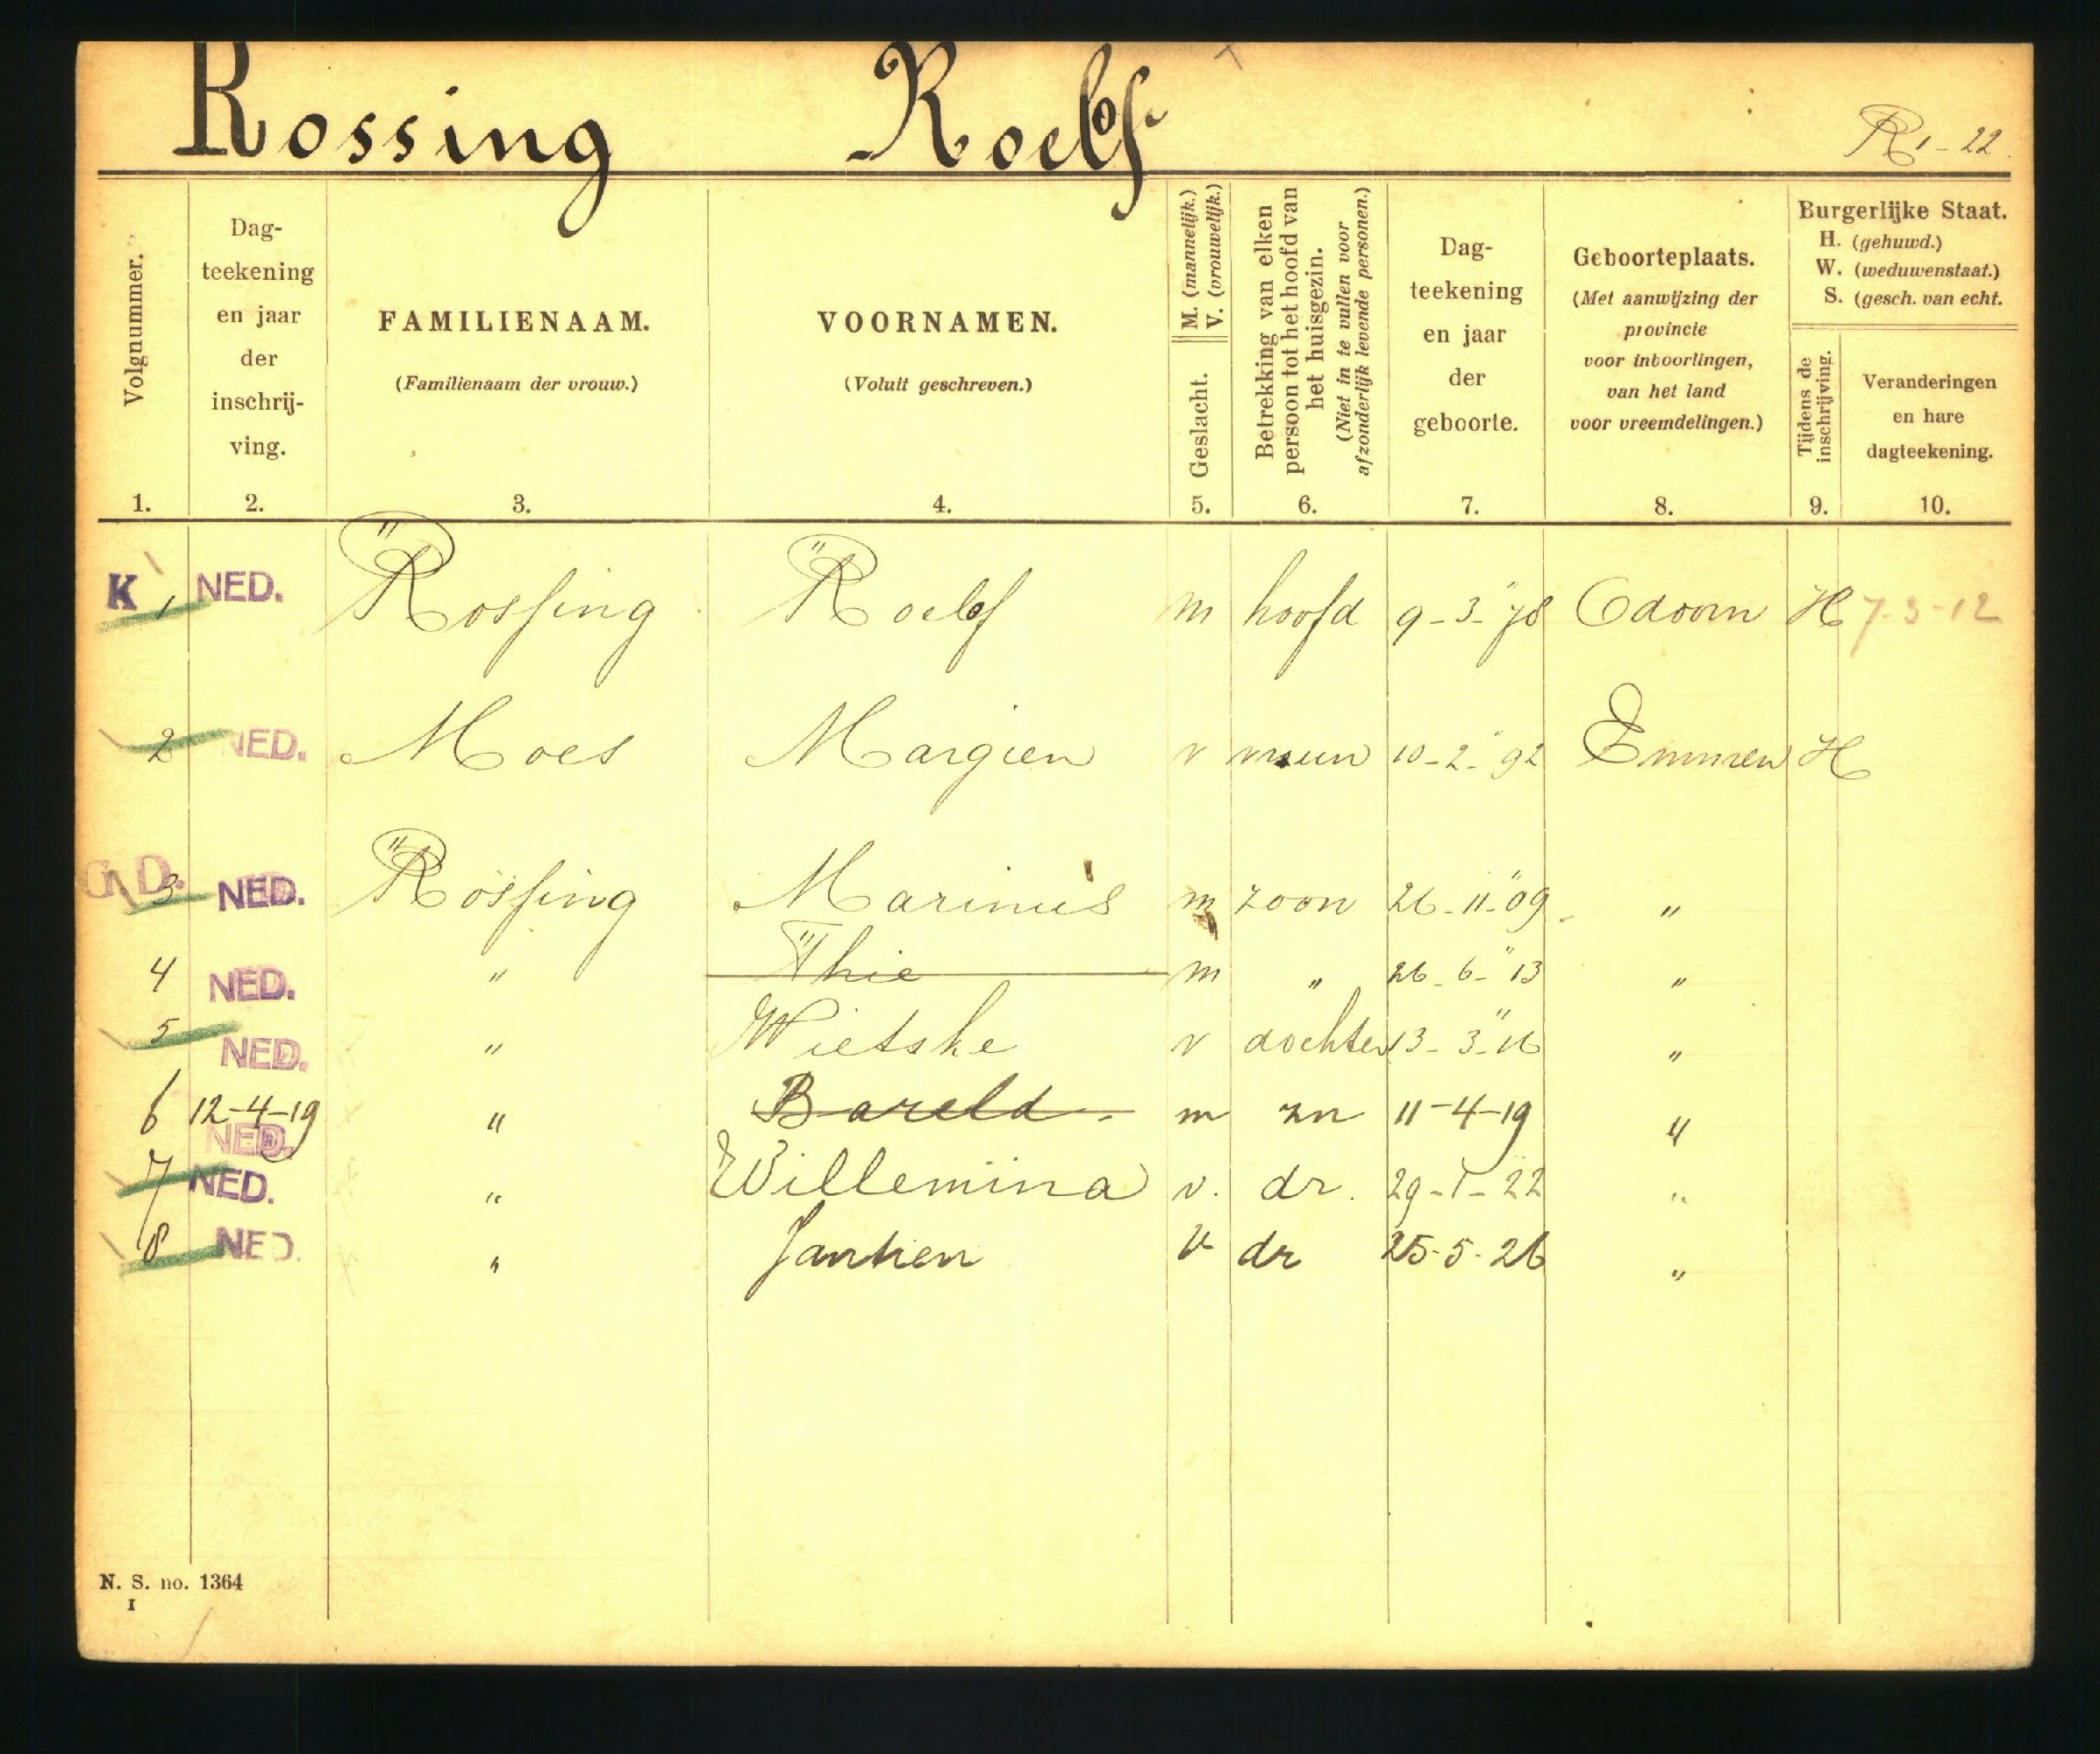 Rossing Roelf
R 1 - 22
Volgnummer.
1.
Dag-
teekening
en jaar
der
inschrij-
ving.
2.
FAMILIENAAM.
(Familienaam der vrouw.)
3.
VOORNAMEN.
(Voluit geschreven.)
4.
M. (mannelijk.)
V. (vrouwelijk.)
Geslacht.
5.
Betrekking van elken
persoon tot het hoofd van
het huisgezin.
(Niet in te vullen voor
afzonderlijk levende personen.)
6.
Dag-
teekening
en jaar
der
geboorte.
7.
Geboorteplaats.
(Met aanwijzing der
provincie
voor inboorlingen,
van het land
voor vreemdelingen.)
8.
Burgerlijke Staat.
H. (gehuwd.)
W. (weduwenstaat.)
S. (gesch. van echt.
Tijdens de
inschrijving.
9.
Veranderingen
en hare
dagteekening.
10.
K 1 NED. Rossing Roelf m hoofd 9-3-"78 Odoorn H 7-3-12
2 NED. Moes Margien v vrouw 10-2-"92 Emmen H
G.D. 3 NED. Rossing Marinus m zoon 26-11-"09 "
4 NED. " Thie m " 26-6-"13 "
5 NED. " Wietske v dochter 13-3-"16 "
6 12-4-19 NED. " Bareld m zn 11-4-19 "
7 NED. " Willemina v. dr. 29-1-22 "
8 NED. " Jantien v dr 25-5-26 "
N. S. no. 1364
I